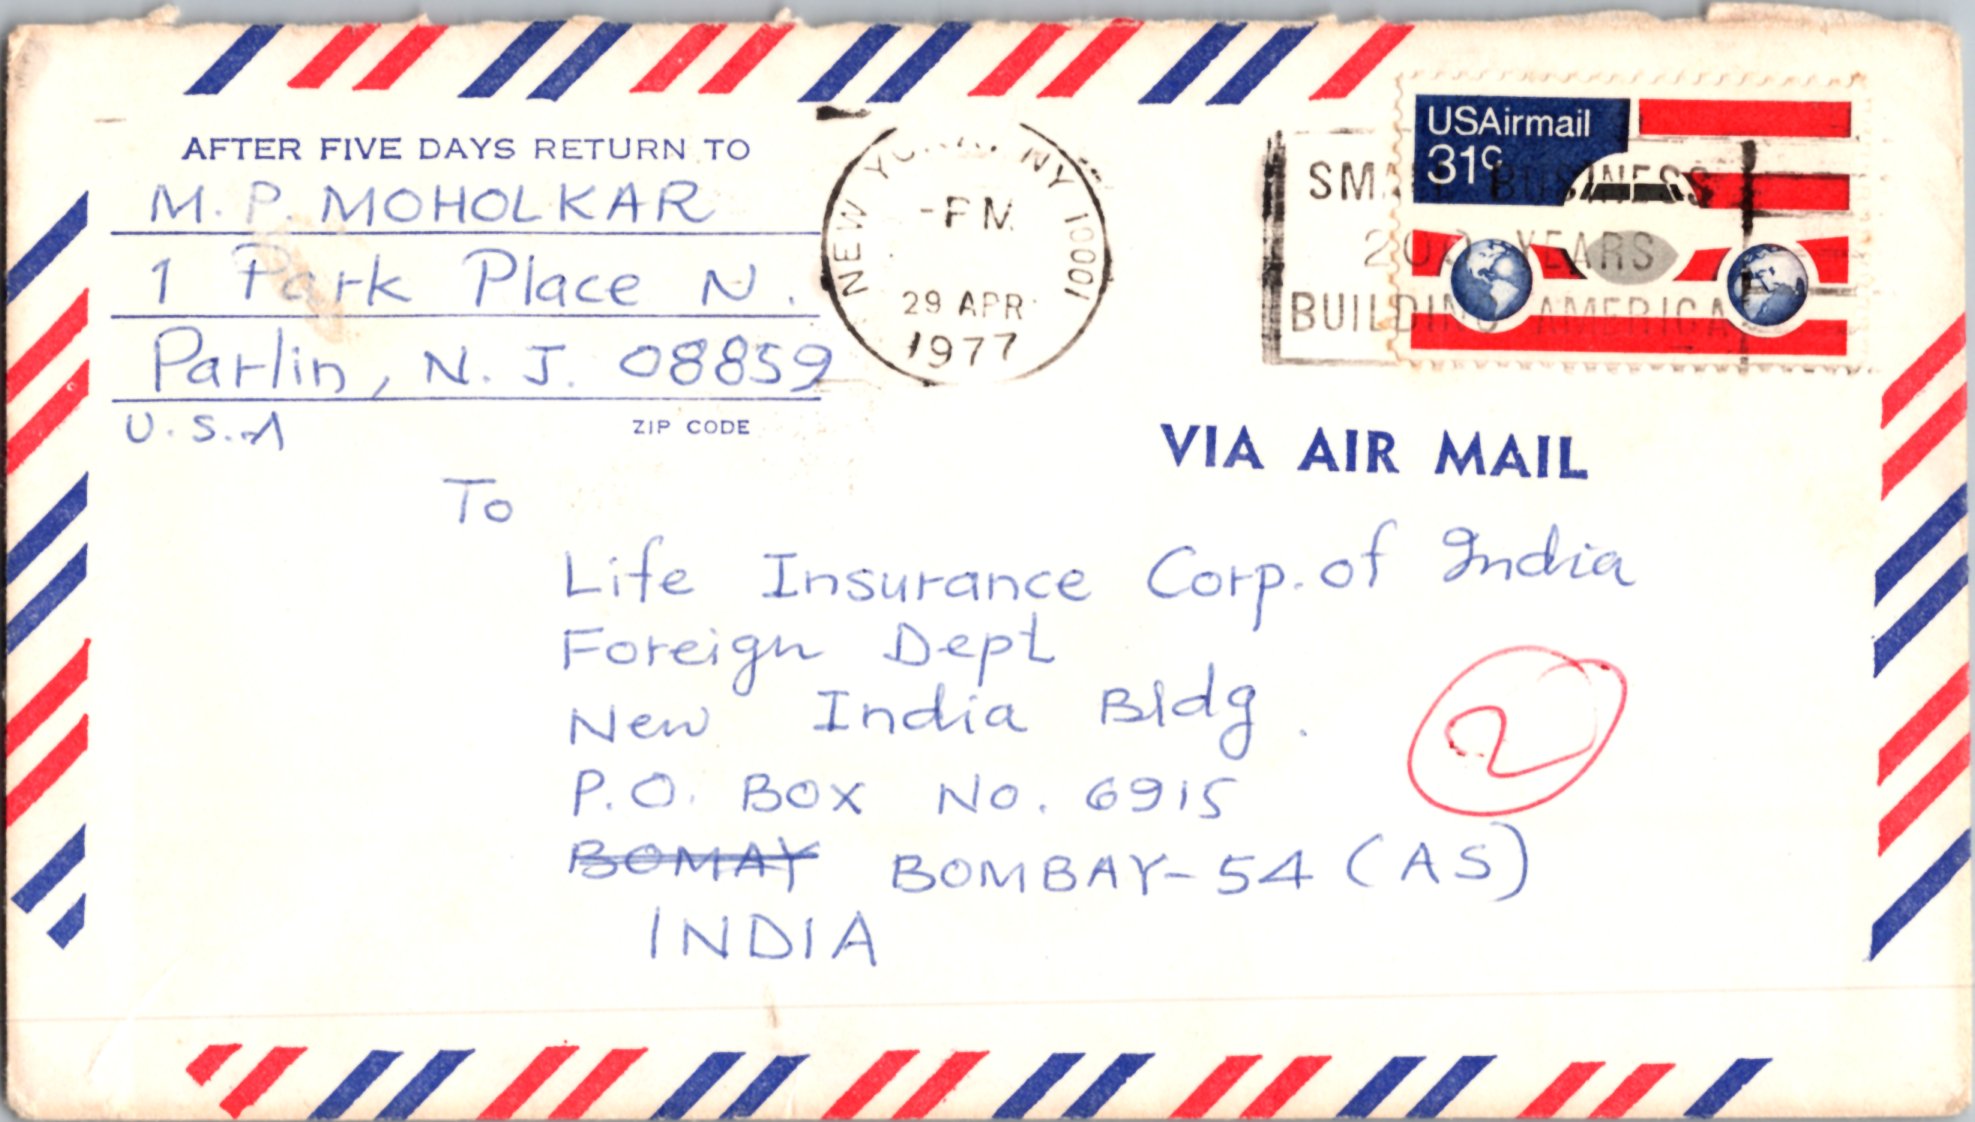 AFTER FIVE DAYS RETURN TO
M. P. MOHOLKAR
1 Park Place N.
Parlin, N. J. 08859
U.S.A
ZIP CODE
NEW YORK, NY 10001
-PM
29 APR
1977
SMALL BUSINESS
200 YEARS
BUILDING AMERICA
USAirmail
31c
VIA AIR MAIL
To
Life Insurance Corp. of India
Foreign Dept
New India Bldg.
P.O. BOX No. 6915
BOMAY BOMBAY-54 (AS)
INDIA
2